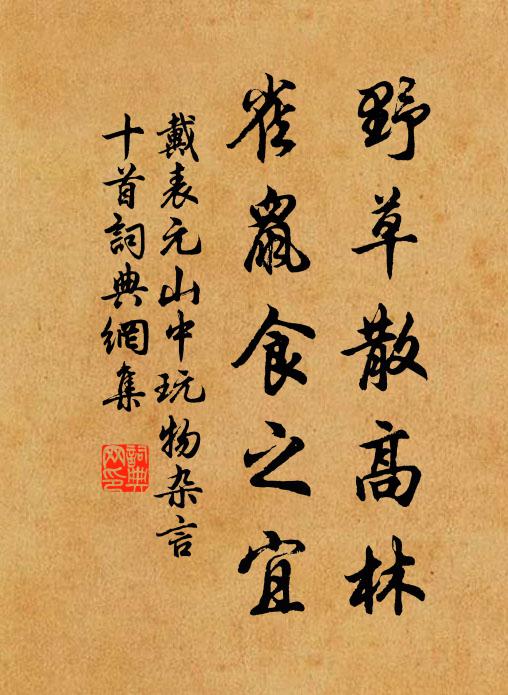 野草散高林
雀鼠食之宜
戴表元山中玩物杂言
十首詞典網集
詞典
网印